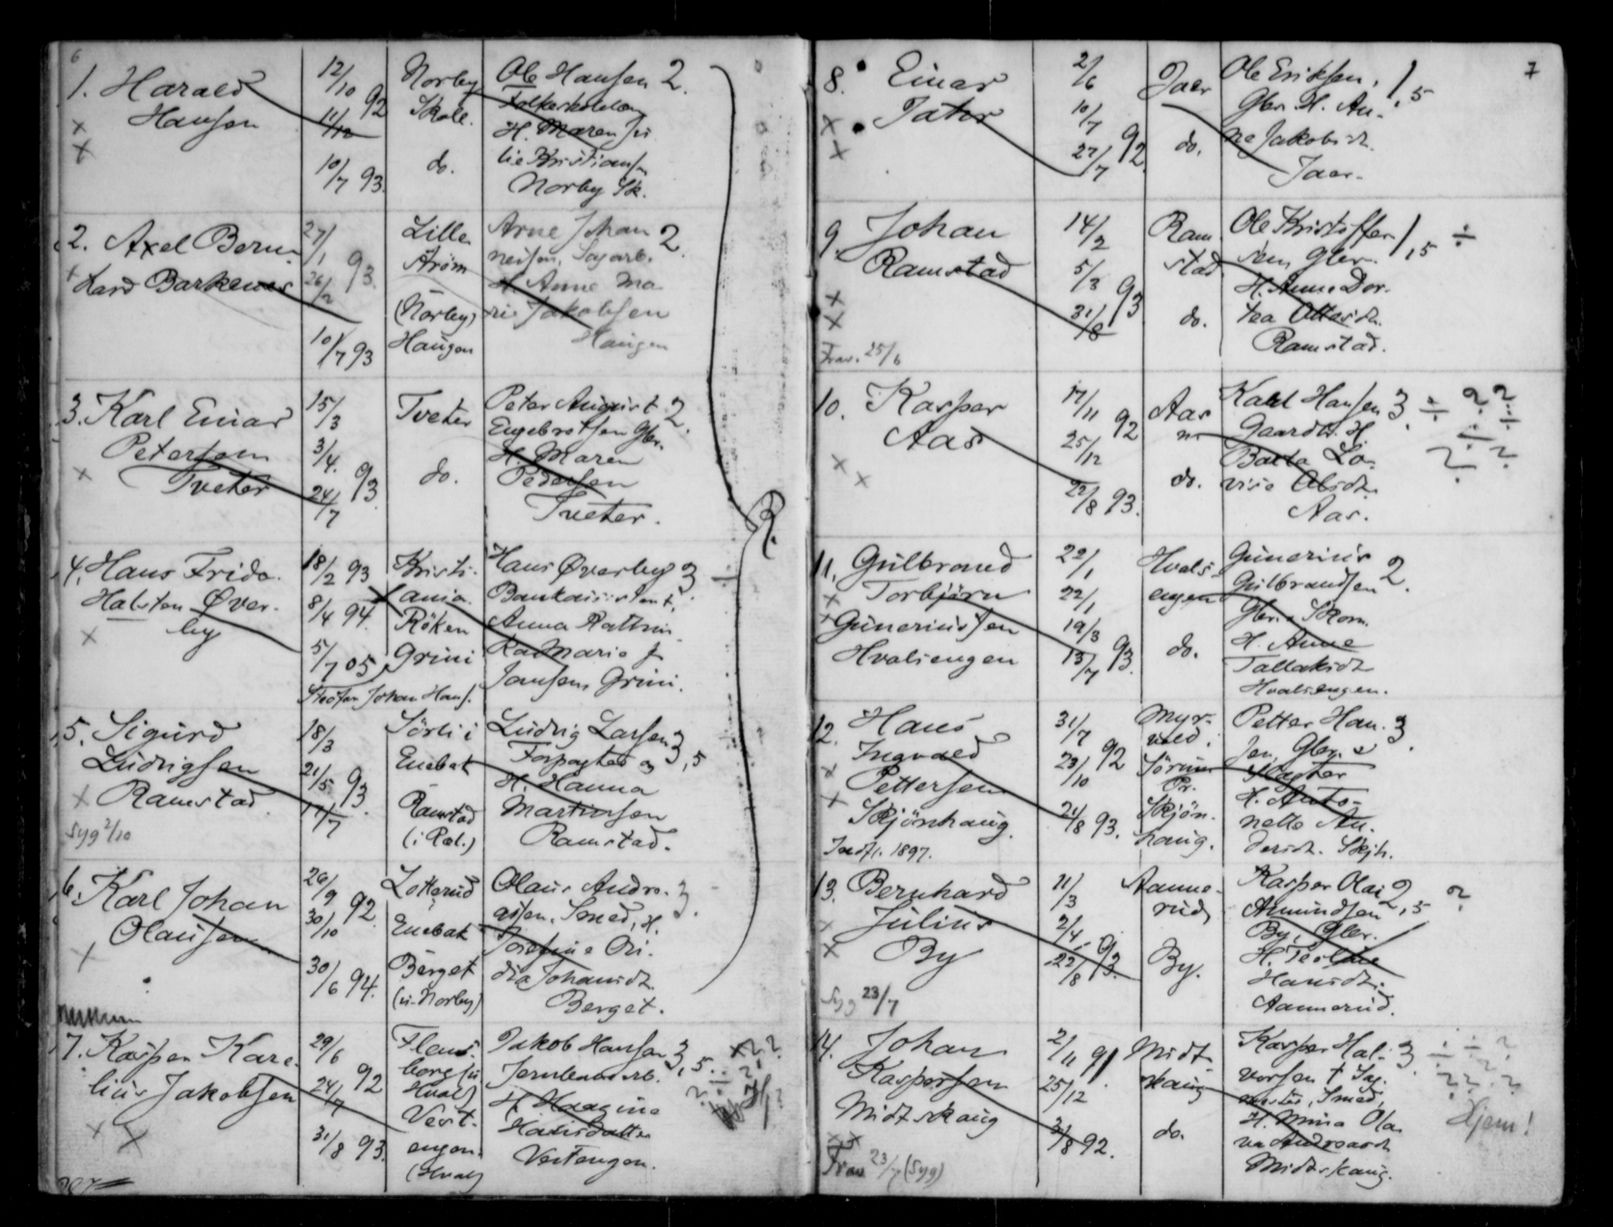 6
1. Harald
Hansen
12/10 92
11/12
10/7 93.
Norby
Skole.
do.
Ole Hansen 2.
H. Maren Ju
lie Kristians
Norby Sk.
2. Axel Bern
hard Barkenes
27/1 93.
26/2
10/7 93
Lille
Strøm
(Norby)
Haugen
Arne Johan 2.
nesen, Sagarb.
H. Anne Ma
rie Jakobsen
Haugen
3. Karl Einar
Petersen
Tveter
15/3
3/4. 93.
24/7
Tveter
do.
Peter August 2.
Engebretsen Gbr.
H. Maren
Pedersen
Tveter.
4. Hans Frido.
Halsten Øver-
by
18/2 93
8/4 94.
5/7 05
Kristi-
ania.
Röken
Grini
Hans Øverby 3 ÷
Bankassistent,
Anna Kathrin
ka Marie f
Jansen, Grini.
Johan Hans.
5. Sigurd
Ludvigsen
Ramstad
Syg 2/10
18/3
21/5 93.
17/7
Sörli i
Enebak
Ramstad
(i Ræl.)
Ludvig Larsen 3,5
Forpagter og
H. Hanna
Martinsen
Ramstad.
6. Karl Johan
Olausen
26/9 92.
30/10
30/6 94.
Lotterud
i
Enebak
Berget
(u. Norby)
Olaus Andre- 3.
assen, Smed, H.
Josefine Ot.
dia Johansdt.
Berget.
7. Kasper Kare-
lius Jakobsen
29/6 92
24/7
31/8 93.
Flens-
borg (u
Hval)
Vest-
engen.
(Hval)
Jakob Hansen 3,5.
Jernbanearb.
H. Hansine
Hansdatter
Vestengen.
R.
7
8. Einar
Jahr
2/6
10/7 92
27/7
Jaer
do.
Ole Eriksen, 1,5
Gbr. H. An-
ne Jakobsd.
Jaer.
9. Johan
Ramstad
Frav. 25/6
14/2
5/3 93
31/8
Ram
stad
do.
Ole Kristoffer 1,5 ÷
sen, Gbr.
H. Anne Dor.
thea Ottersdt.
Ramstad.
10. Kasper
Aas
17/11 92
25/12
22/8 93.
Aas
do.
Karl Hansen 3. ÷ ? ?
Gaardb. H.
Berta Lo-
vise Olsdt.
Aas.
11. Gulbrand
Torbjørn
Gunneriussen
Hvalsengen
22/1
22/1
19/3 93.
13/7
Hvals-
engen
do.
Gunerius
Gulbrandsen 2.
Gbr. & Skom.
H. Anne
Tollaksdt.
Hvalsengen.
12. Hans
Ingvald
Pettersen
Skjönhaug.
Indfl. 1897.
31/7 92
23/10
21/8 93.
Myr-
vold,
Sörum
Pr.
Skjön.
haug.
Petter Han- 3.
sen, Gbr. &
Slagter
H. Anto-
nette An.
dersdt. Skjh.
13. Bernhard
Julius
By
Syg 23/7
11/3
2/4. 93.
22/8
Aamo-
rud,
By.
Kasper Olai 2,5 ?
Amundsen
By, Gbr.
H. Teoline
Hansdt.
Aamerud.
14. Johan
Kaspersen
Midtskaug
Frav 23/7 (Syg)
2/11 91.
25/12
31/8 92.
Midt-
skaug
do.
Kasper Hal- 3.
vorsen f Sag-
mester, Smed,
H. Mina Ola-
va Andreasdt
Midtskaug.
Hjem!